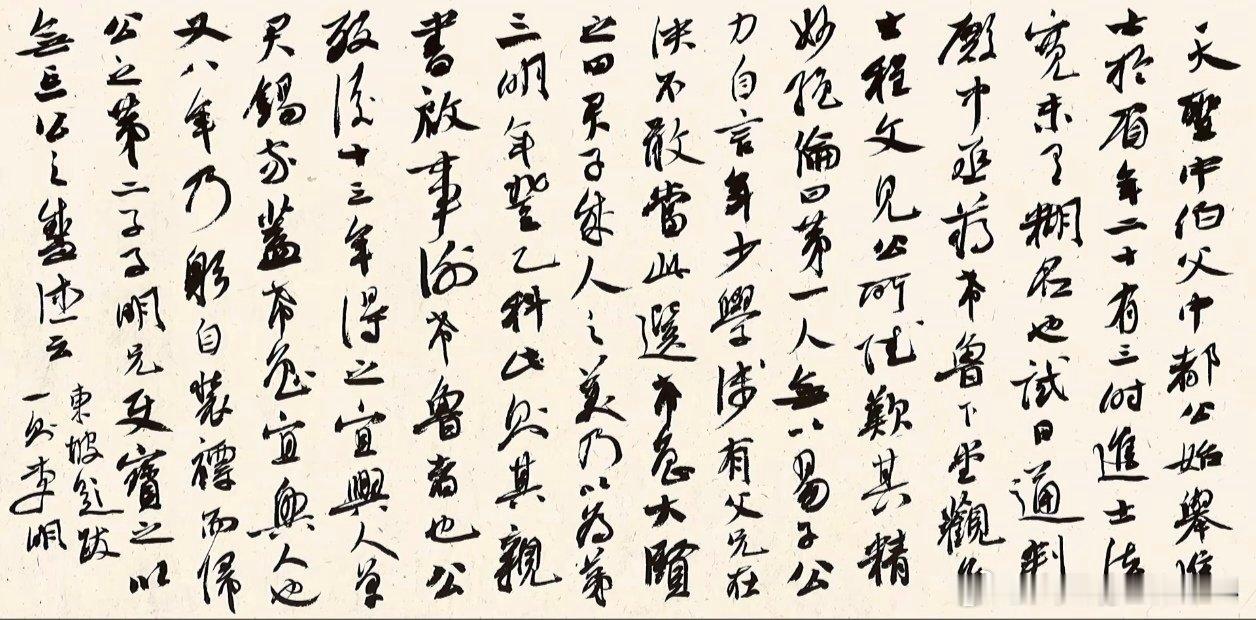 天聖中伯父中都公始舉進
士於眉年二十有三時進士法
寬未有糊名也試日通判
殿中丞蔣希魯下堂觀進
士程文見公所賦歎其精
妙絕倫曰第一人無以易子公
力自言年少學淺有父兄在
決不敢當此選希魯大賢
之曰君子成人之美乃以為第
三明年登乙科此則其親
書啟事謝希魯者也公
歿後十三年得之宜興人單
君錫家蓋希魯宜興人也
又八年乃躬自裝褾而歸
公之第二子子明兄使寶之以
無忘公之盛德云
東坡題跋
一則李明